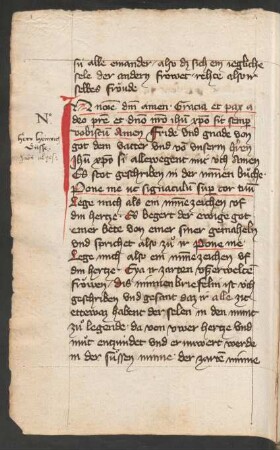 sú alle einander · also dz sich ein iegliche
sele der andern fröwet · rehte als ir
selbes fröude
In noīe dnī amen · Gracia et pax a
deo pr̄e et dn̄o nr̄o ihū xp̄o sit semp
vobiscū Amen · Fride vnd gnade von
got dem vatter vnd vō vnserm hren
ihū xp̄o si allewegent mit v́ch Amen
Es stot geschriben in der minnen bůche
Pone me ut signaculū sup cor tuū
Lege mich als ein minne zeichen vf
din hertze · Es begert der ewige got
einer bete von einer siner gemaheln
vnd sprichet also zů ir Pone me
Lege mich als ein minne zeichen vf
din hertze · Eya ir zarten vsserwelten
fröwen · dis minnen briefelin ist v́ch
geschriben vnd gesant daz ir alle zit
etteswaz habent der selen in den munt
zů legende da von v́wer hertze vnd
můt enzundet vnd ernuwert werde
in der sússen minne · der zarten minne
Nᵒ
herr heinrich